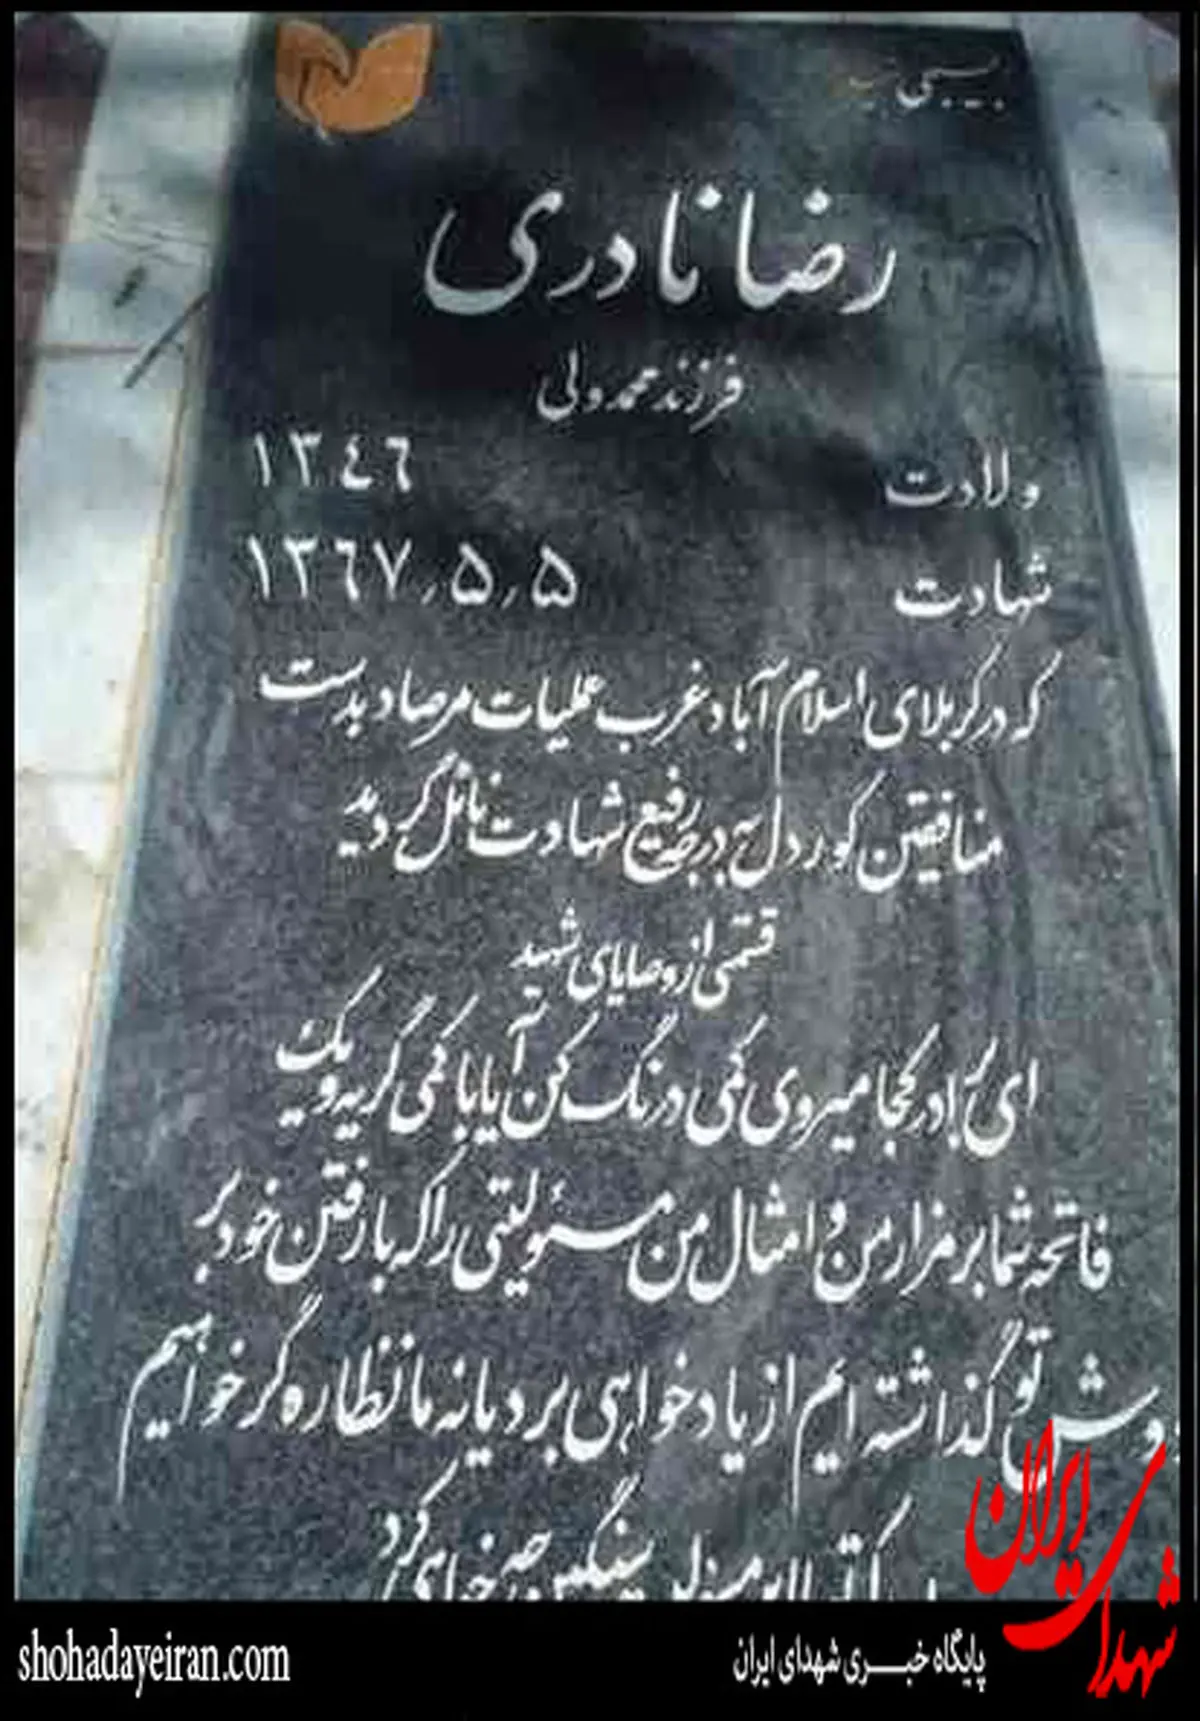 بسیجی شهید
رضا نادری
فرزند محمد ولی
ولادت ۱۳٤٦
شهادت ۱۳٦۷٫۵٫۵
که در کربلای اسلام آباد غرب عملیات مرصاد بدست
منافقین کور دل به درجه رفیع شهادت نائل گردید
قسمتی از وصایای شهید
ای برادر کجا میروی کمی درنگ کن آیا با کمی گریه و یک
فاتحه شما بر مزار من و امثال من مسئولیتی را که با رفتن خود بر
دوش تو گذاشته ایم از یاد خواهی برد یا نه ما نظاره گر خواهیم
که تو با این مسئولیت سنگین چه خواهی کرد
شهدای ایران
پایگاه خبری شهدای ایران
shohadayeiran.com